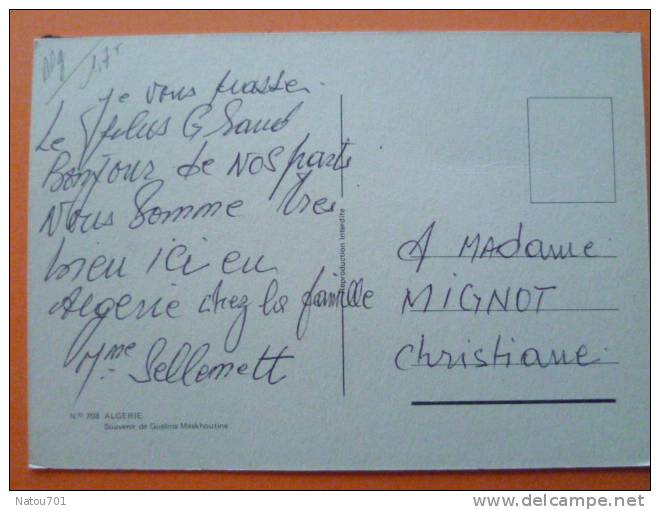 Alg
1,7
Je vous passe
Le plus Grand
Bonjour de nos parts
Nous Somme tres
bien ici en
Algerie chez la famille
Mme Sellemett
A MAdame
MIGNOT
Christiane
Reproduction interdite
N.º 708 ALGERIE
Souvenir de Guelma Meskhoutine
Natou701
www.delcampe.net